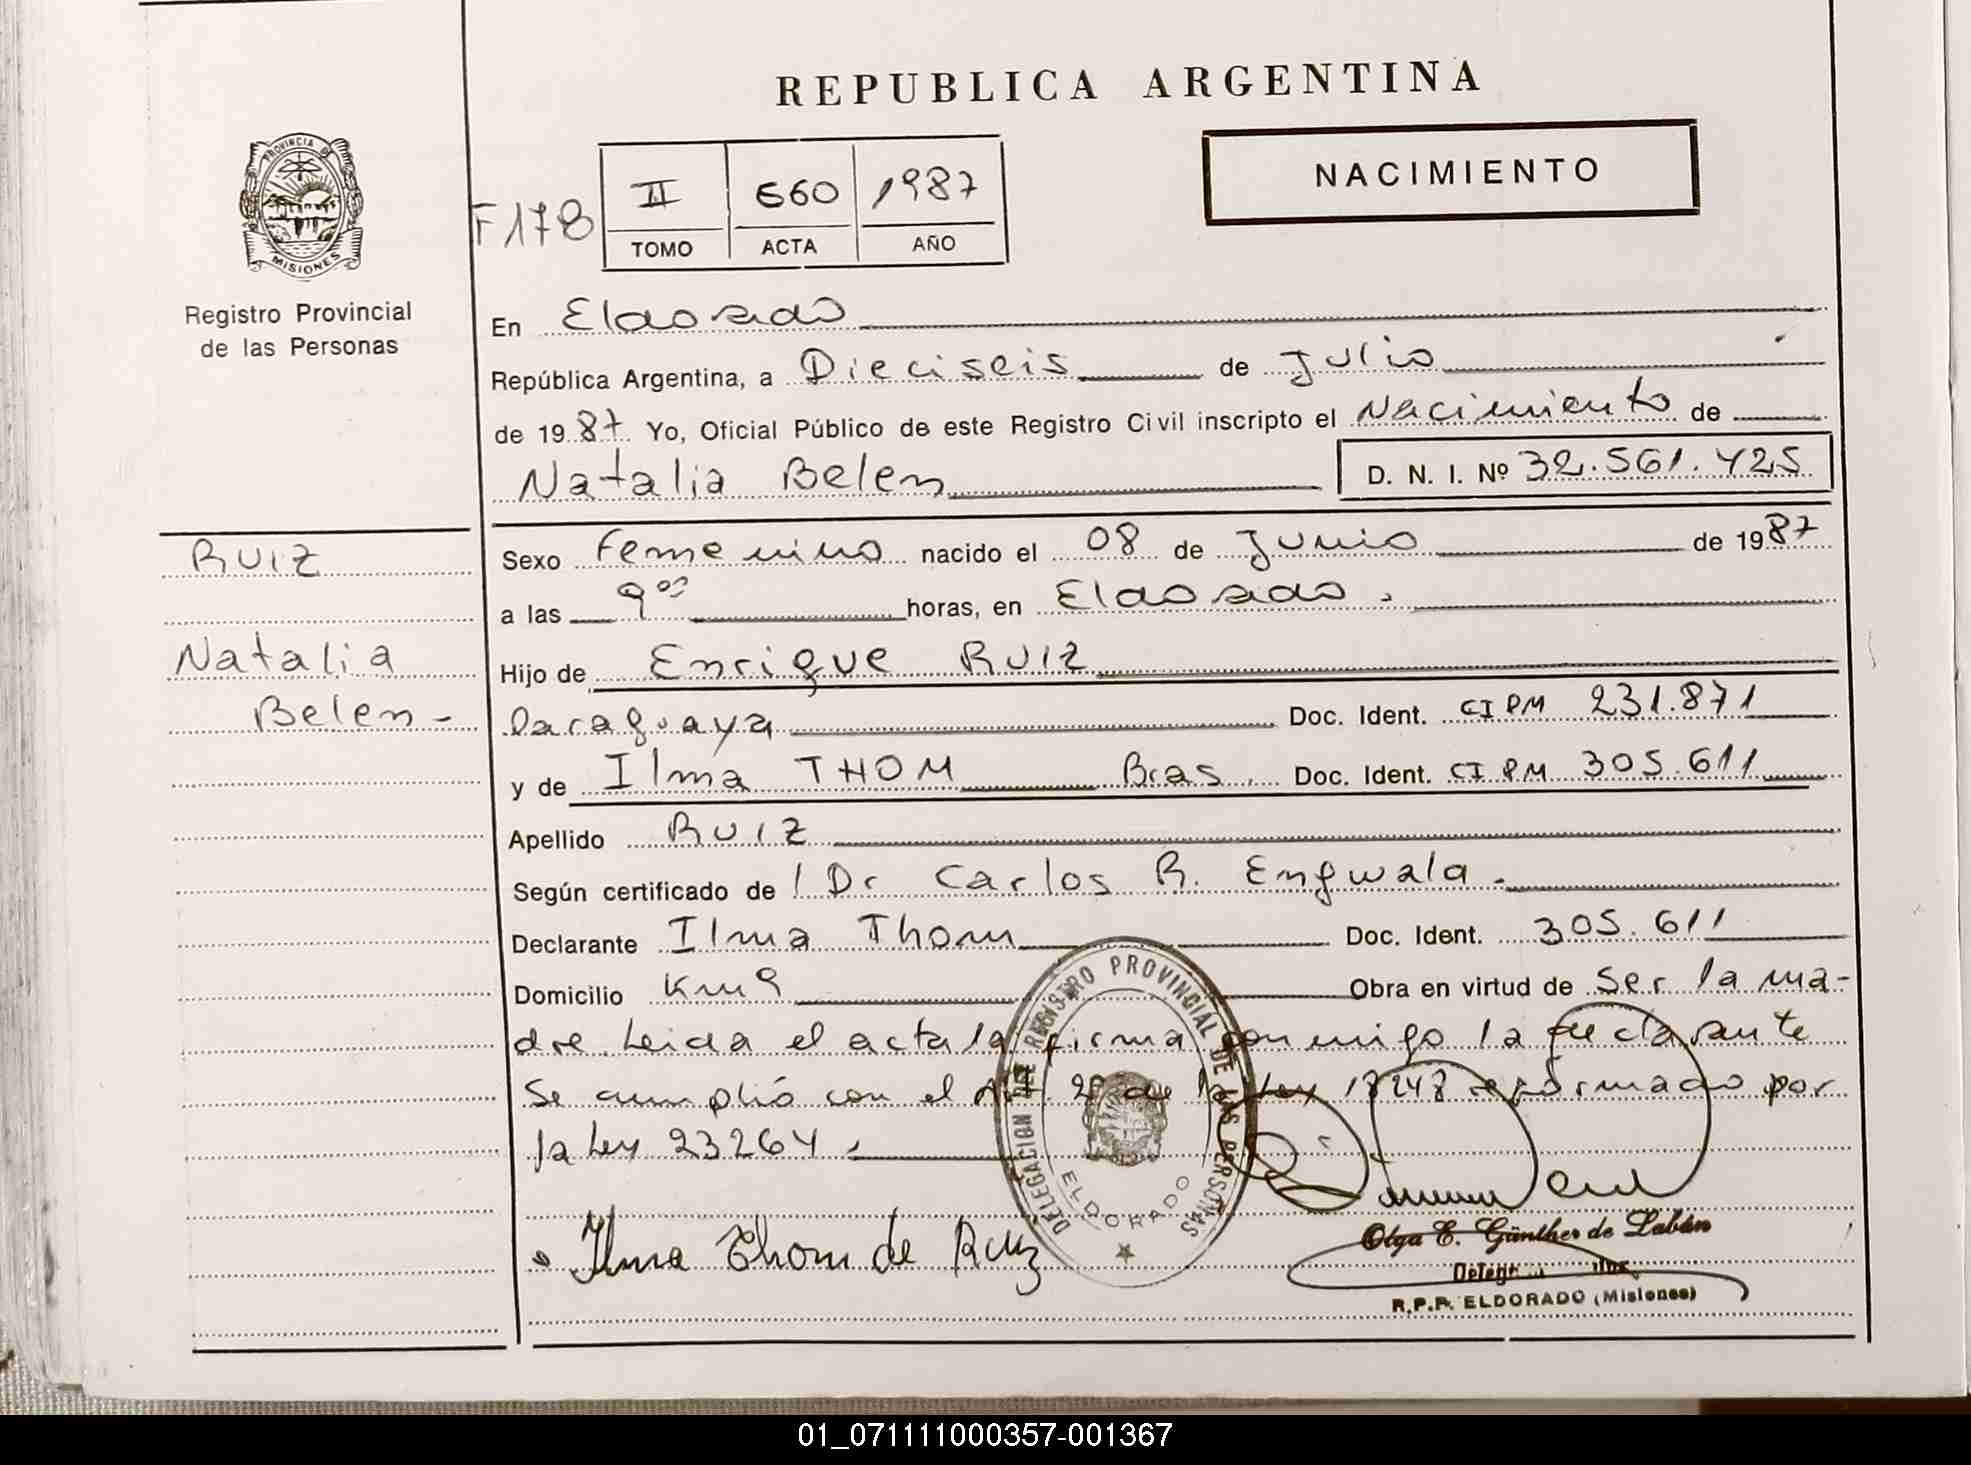 REPUBLICA ARGENTINA
PROVINCIA DE
MISIONES
Registro Provincial
de las Personas
NACIMIENTO
F178
II 660 1987
TOMO ACTA AÑO
En Eldorado
República Argentina, a Dieciseis de Julio
de 1987 Yo, Oficial Público de este Registro Civil inscripto el Nacimiento de
Natalia Belen D. N. I. Nº 32.561.425
RUIZ
Natalia
Belen -
Sexo Femenino nacido el 08 de Junio de 1987
a las 9 00 horas, en Eldorado.
Hijo de Enrique RUIZ
Paraguaya Doc. Ident. CI PM 231.871
y de Ilma THOM Bras. Doc. Ident. CI PM 305.611
Apellido RUIZ
Según certificado de Dr Carlos R. Engwala.
Declarante Ilma Thom Doc. Ident. 305.611
Domicilio Km 9 Obra en virtud de ser la ma-
dre. Leida el acta la firma conmigo la declarante
Se cumplió con el Art. 2º de la Ley 18248 reformado por
la Ley 23264.
DELEGACION DEL REGISTRO PROVINCIAL DE LAS PERSONAS
ELDORADO
Ilma Thom de Ruiz
Olga E. Günther de Labán
R.P.P. ELDORADO (Misiones)
01_071111000357-001367